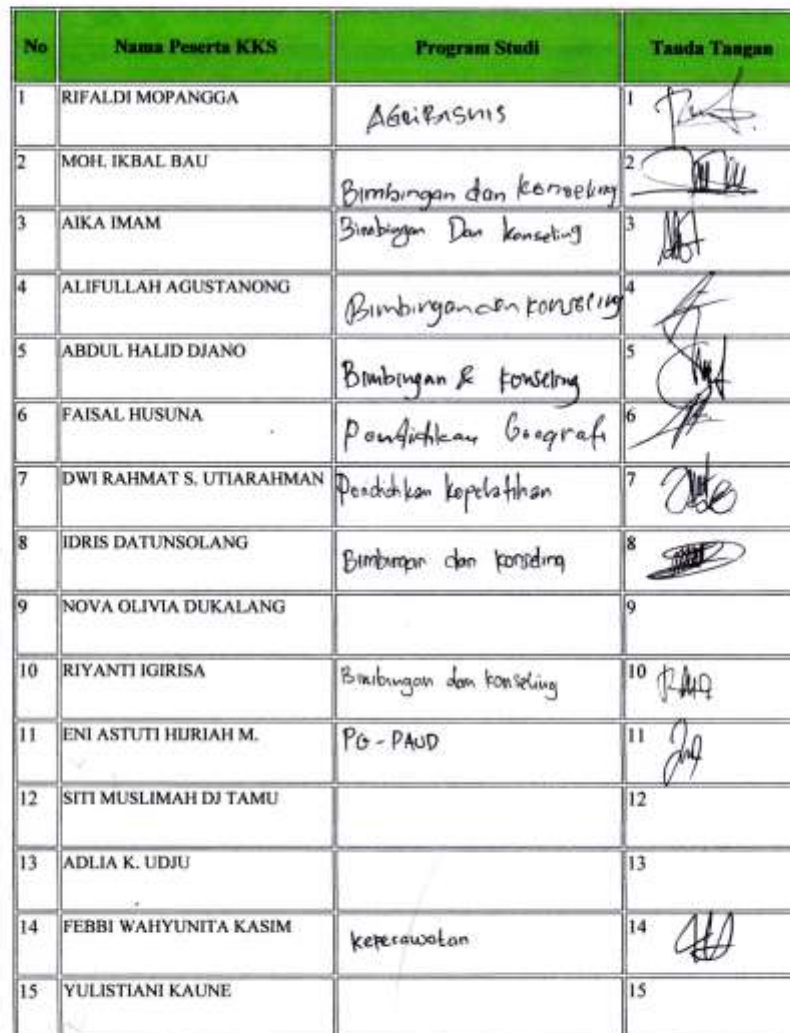 No Nama Peserta KKS Program Studi Tanda Tangan
1 RIFALDI MOPANGGA AGRIBASNIS 1
2 MOH. IKBAL BAU Bimbingan dan konseling 2
3 AIKA IMAM Bimbingan Dan konseling 3
4 ALIFULLAH AGUSTANONG Bimbingan dan konseling 4
5 ABDUL HALID DJANO Bimbingan & konseling 5
6 FAISAL HUSUNA Pendidikan Geografi 6
7 DWI RAHMAT S. UTIARAHMAN Pendidikan kepelatihan 7
8 IDRIS DATUNSOLANG Bimbingan dan konseling 8
9 NOVA OLIVIA DUKALANG 9
10 RIYANTI IGIRISA Bimbingan dan konseling 10
11 ENI ASTUTI HIJRIAH M. PG-PAUD 11
12 SITI MUSLIMAH DJ TAMU 12
13 ADLIA K. UDJU 13
14 FEBBI WAHYUNITA KASIM keperawatan 14
15 YULISTIANI KAUNE 15